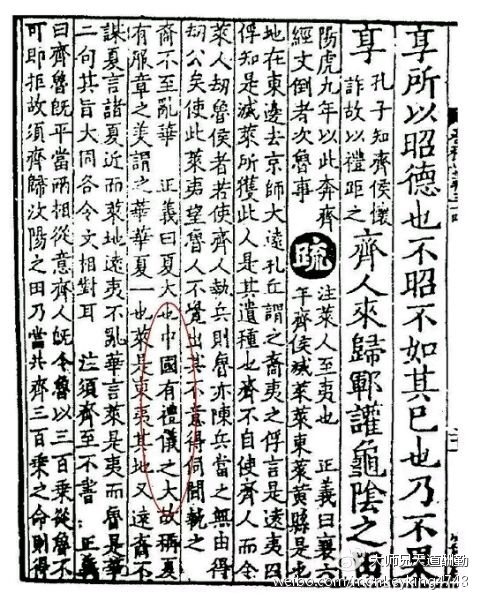 享所以昭德也不昭不如其已也乃不果
享
孔子知齊侯懷
詐故以禮距之
齊人來歸鄆讙龜陰之田
陽虎九年以此奔齊
經文倒者次魯事
疏
注萊人至夷也 正義曰襄六
年齊侯滅萊萊東萊黃縣是也
地在東邊去京師大遠孔丘謂之裔夷之俘言是遠夷因
俘知是滅萊所獲此人是其遺種也齊不自使齊人而令
萊人劫魯侯者若使齊人執兵則魯亦陳兵當之無由得
劫公矣使此萊夷望魯人不覺出其不意得伺間執之
裔不至亂華 正義曰夏大也中國有禮儀之大故稱夏
有服章之美謂之華華夏一也萊是東夷其地又遠裔不
謀夏言諸夏近而萊地遠夷不亂華言萊是夷而魯是華
二句其旨大同各令文相對耳 注須齊至不書 正義
曰齊魯既平當兩相從意齊人既令魯以三百乘從魯不
可即拒故須齊歸汶陽之田乃當共齊三百乘之命則得
大师兄天道酬勤
weibo.com/monkeyking4743